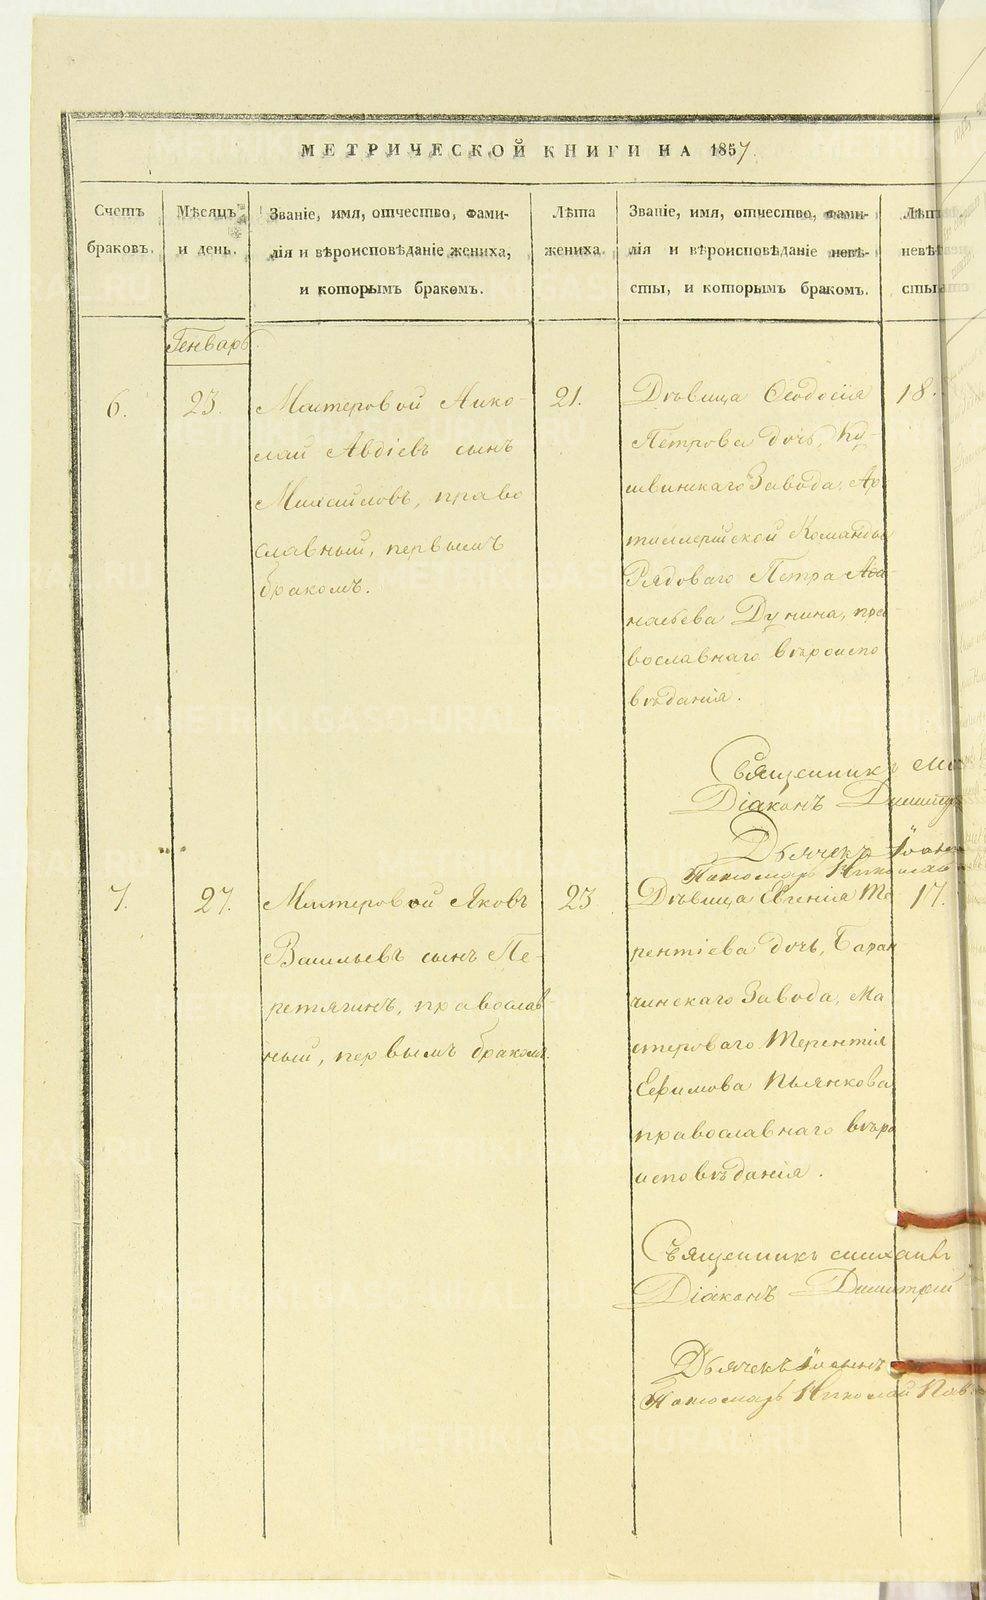 МЕТРИЧЕСКОЙ КНИГИ НА 1857.
Счетъ
браковъ.
Мѣсяцъ
и день.
Званіе, имя, отчество, фами-
лія и вѣроисповѣданіе жениха,
и которымъ бракомъ.
Лѣта
жениха.
Званіе, имя, отчество, фами-
лія и вѣроисповѣданіе невѣ-
сты, и которымъ бракомъ.
Лѣта
невѣ
сты
Генварь.
6.
23.
Мастеровой Нико-
лай Авдіевъ сынъ
Михайловъ, право
славный, первымъ
бракомъ.
21.
Дѣвица Ѳеодосія
Петрова дочь, Ку-
швинскаго Завода, Ар
тиллерійской Команды
Рядоваго Петра Аѳа-
насьева Дунина, пра
вославнаго вѣроиспо
вѣданія.
18.
Священникъ
Діаконъ Димитр
Дьячекъ Іоанн
Пономарь Николай
7.
27.
Мастеровой Яковъ
Васильевъ сынъ Пе-
ретягинъ, православ-
ный, первымъ бракомъ.
23
Дѣвица Евгенія Те
рентіева дочь, Баран
чинскаго Завода, Ма
стероваго Терентія
Ефимова Пьянкова
православнаго вѣро
исповѣданія.
17.
Священникъ
Діаконъ Димитрій
Дьячекъ Іоаннъ
Пономарь Николай Пав
METRIKI.GASO-URAL.RU